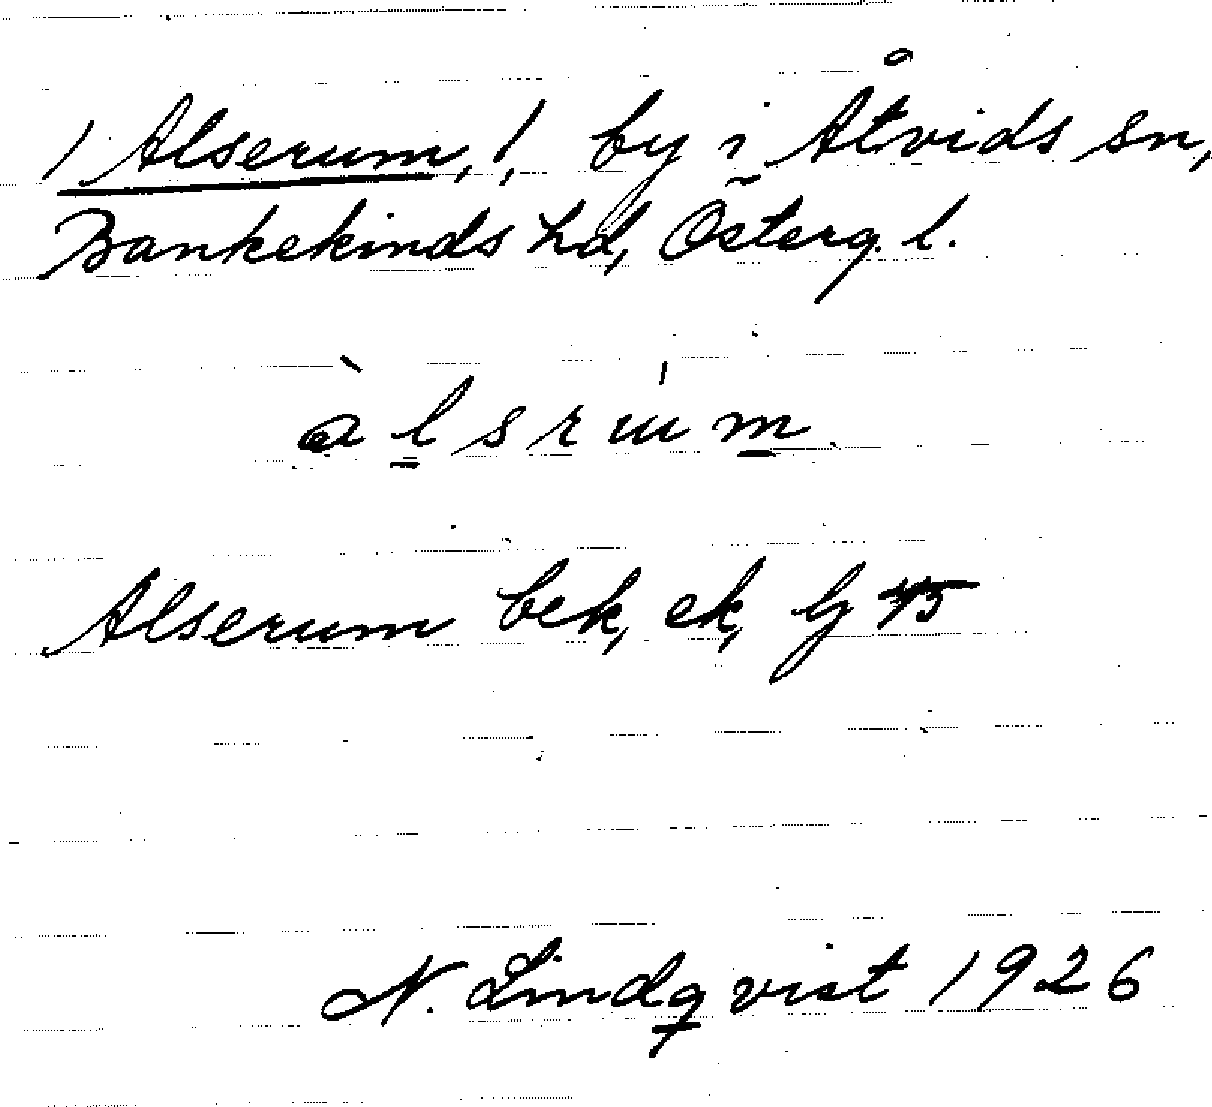 / Alserum, /, by i Åtvids sn,
Bankekinds hd, Österg. l.
àlsrúm
Alserum bek, ek, lj 45
N. Lindqvist 1926